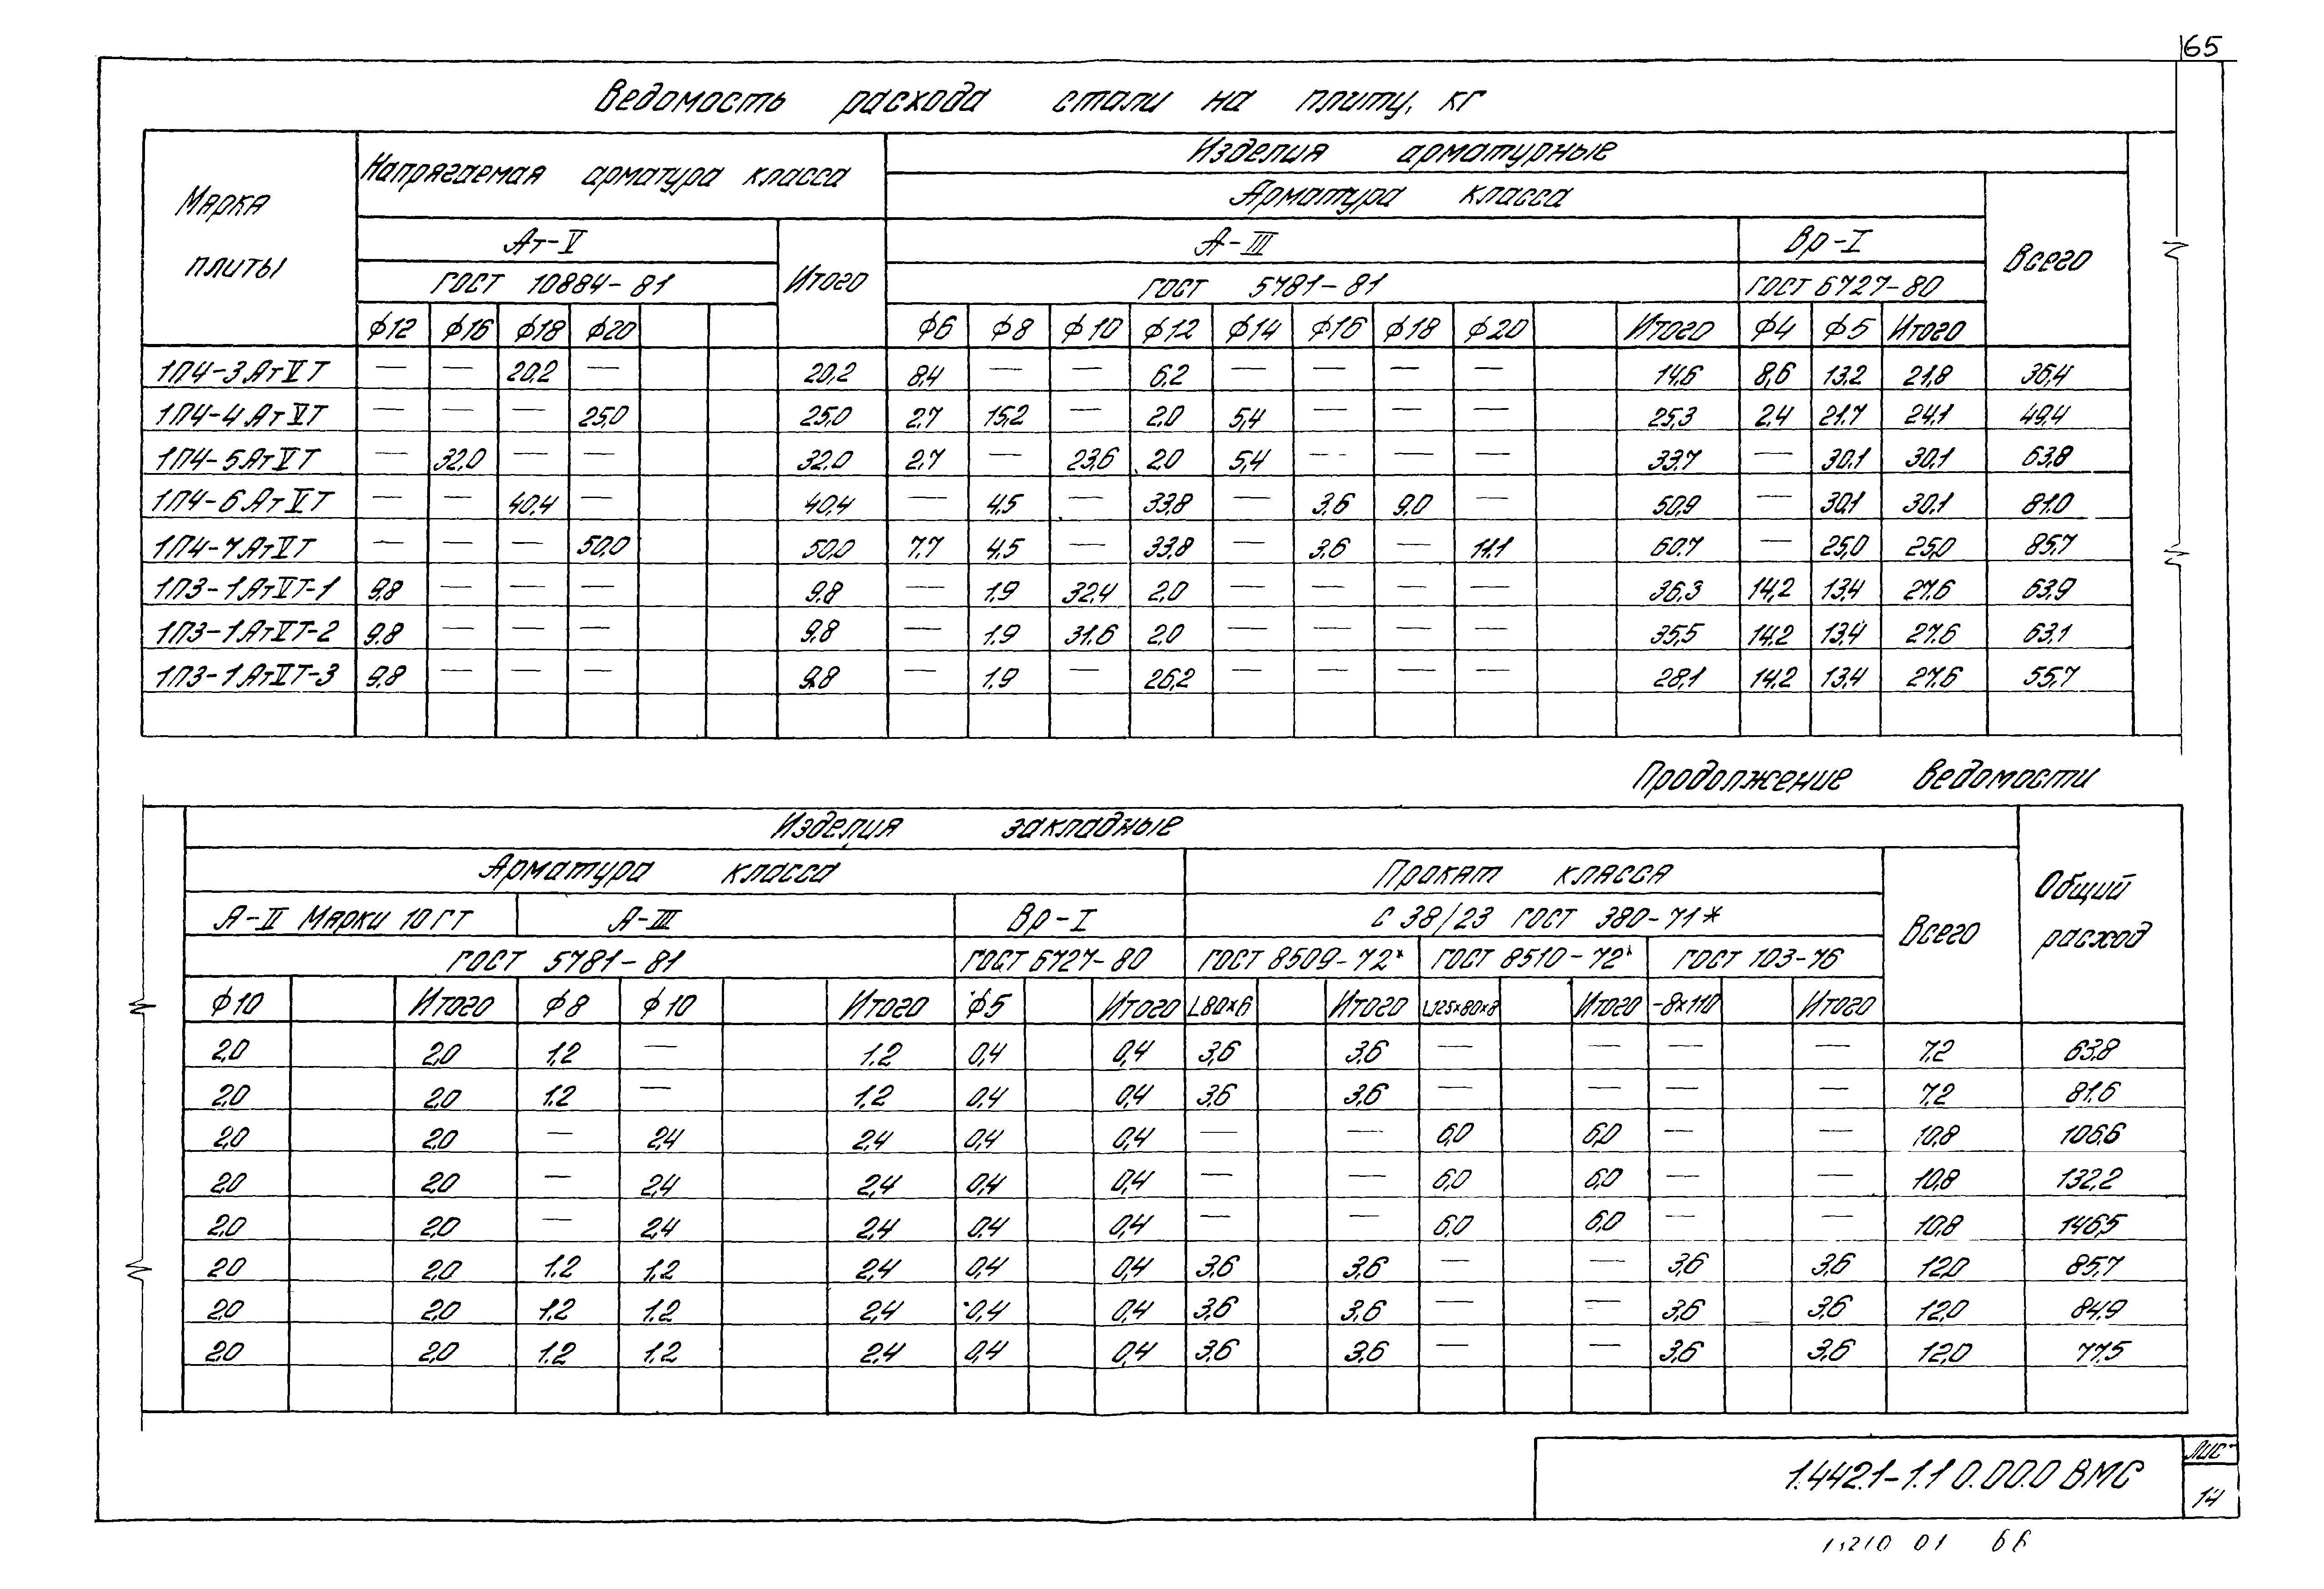 65
Ведомость расхода стали на плиту, кг
Марка плиты
Напрягаемая арматура класса
Изделия арматурные
Арматура класса
Всего
Ат-V
Итого
А-III
Вр-I
ГОСТ 10884-81
ГОСТ 5781-81
ГОСТ 6727-80
ф12 ф16 ф18 ф20 ф6 ф8 ф10 ф12 ф14 ф16 ф18 ф20 Итого ф4 ф5 Итого
1П4-3АтVТ — — 20,2 — 20,2 8,4 — — 6,2 — — — — 14,6 8,6 13,2 21,8 36,4
1П4-4АтVТ — — — 25,0 25,0 2,7 15,2 — 2,0 5,4 — — — 25,3 2,4 21,7 24,1 49,4
1П4-5АтVТ — 32,0 — — 32,0 2,7 — 23,6 2,0 5,4 — — — 33,7 — 30,1 30,1 63,8
1П4-6АтVТ — — 40,4 — 40,4 — 4,5 — 33,8 — 3,6 9,0 — 50,9 — 30,1 30,1 81,0
1П4-7АтVТ — — — 50,0 50,0 7,7 4,5 — 33,8 — 3,6 — 11,1 60,7 — 25,0 25,0 85,7
1П3-1АтVТ-1 9,8 — — — 9,8 — 1,9 32,4 2,0 — — — — 36,3 14,2 13,4 27,6 63,9
1П3-1АтVТ-2 9,8 — — — 9,8 — 1,9 31,6 2,0 — — — — 35,5 14,2 13,4 27,6 63,1
1П3-1АтVТ-3 9,8 — — — 9,8 — 1,9 — 26,2 — — — — 28,1 14,2 13,4 27,6 55,7
Продолжение ведомости
Изделия закладные
Общий расход
Арматура класса
Прокат класса
Всего
А-II Марки 10ГТ
А-III
Вр-I
С 38/23 ГОСТ 380-71*
ГОСТ 5781-81
ГОСТ 6727-80
ГОСТ 8509-72*
ГОСТ 8510-72*
ГОСТ 103-76
ф10 Итого ф8 ф10 Итого ф5 Итого L80×6 Итого L125×80×8 Итого -8×110 Итого
2,0 2,0 1,2 — 1,2 0,4 0,4 3,6 3,6 — — — — 7,2 63,8
2,0 2,0 1,2 — 1,2 0,4 0,4 3,6 3,6 — — — — 7,2 81,6
2,0 2,0 — 2,4 2,4 0,4 0,4 — — 6,0 6,0 — — 10,8 106,6
2,0 2,0 — 2,4 2,4 0,4 0,4 — — 6,0 6,0 — — 10,8 132,2
2,0 2,0 — 2,4 2,4 0,4 0,4 — — 6,0 6,0 — — 10,8 146,5
2,0 2,0 1,2 1,2 2,4 0,4 0,4 3,6 3,6 — — 3,6 3,6 12,0 85,7
2,0 2,0 1,2 1,2 2,4 0,4 0,4 3,6 3,6 — — 3,6 3,6 12,0 84,9
2,0 2,0 1,2 1,2 2,4 0,4 0,4 3,6 3,6 — — 3,6 3,6 12,0 77,5
1.442.1-1.1 0.00.0 ВМС
Лист
14
01 66